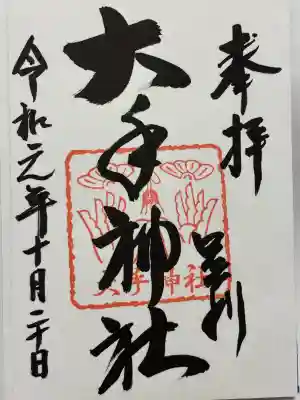 奉拝
足利
大手神社
大手神社
令和元年十月二十日